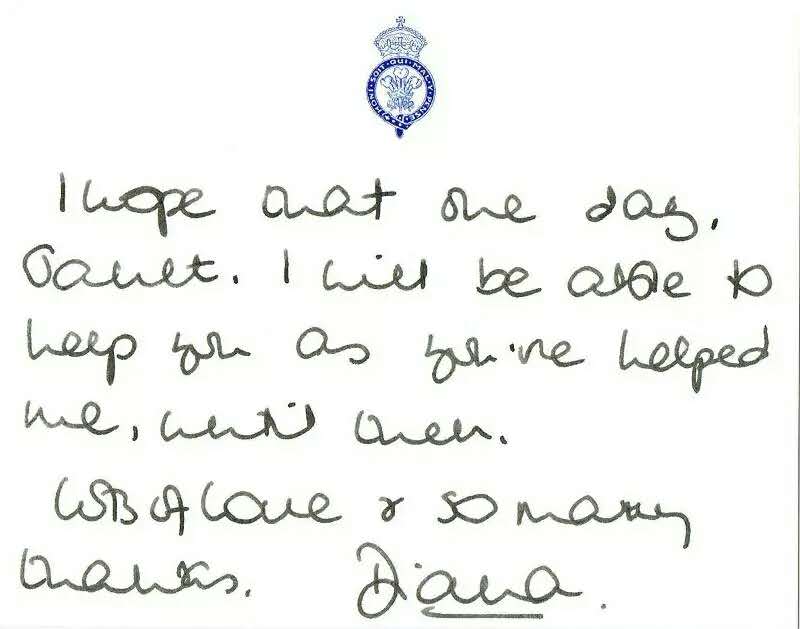 HONI · SOIT · QUI · MAL · Y · PENSE
I hope that one day,
Janet, I will be able to
help you as you've helped
me, until then.
Lots of love & so many
thanks. Diana.